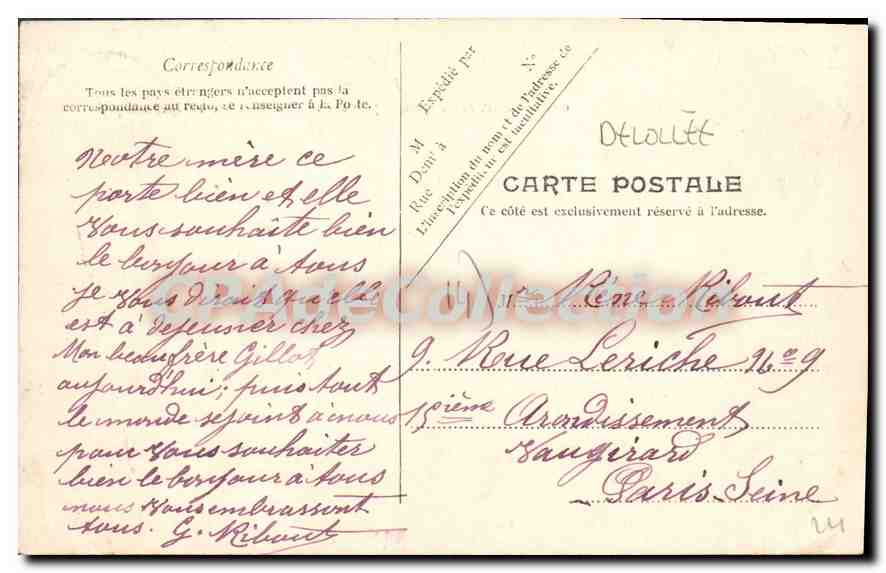 Correspondance
Tous les pays étrangers n'acceptent pas la
correspondance au recto, se renseigner à la Poste.
Notre mère ce
porte bien et elle
vous souhaite bien
le bonjour à tous
je vous dirait quelle
est à dejeusner chez
Mon beaufrère Gillot
aujourd'hui; puis tout
le monde se joint à nous
pour vous souhaiter
bien le bonjour à tous
nous vous embrassont
tous. G. Ribout
Expédié par
M
Demt à
Rue
N°
L'inscription du nom et de l'adresse de
l'expéditeur est facultative.
DELOLLÉE
CARTE POSTALE
Ce côté est exclusivement réservé à l'adresse.
CPADeCollection
14)
Mr Réné Ribout
9. Rue Leriche No 9
15ième Arondissement
Vaugirard
Paris Seine
24